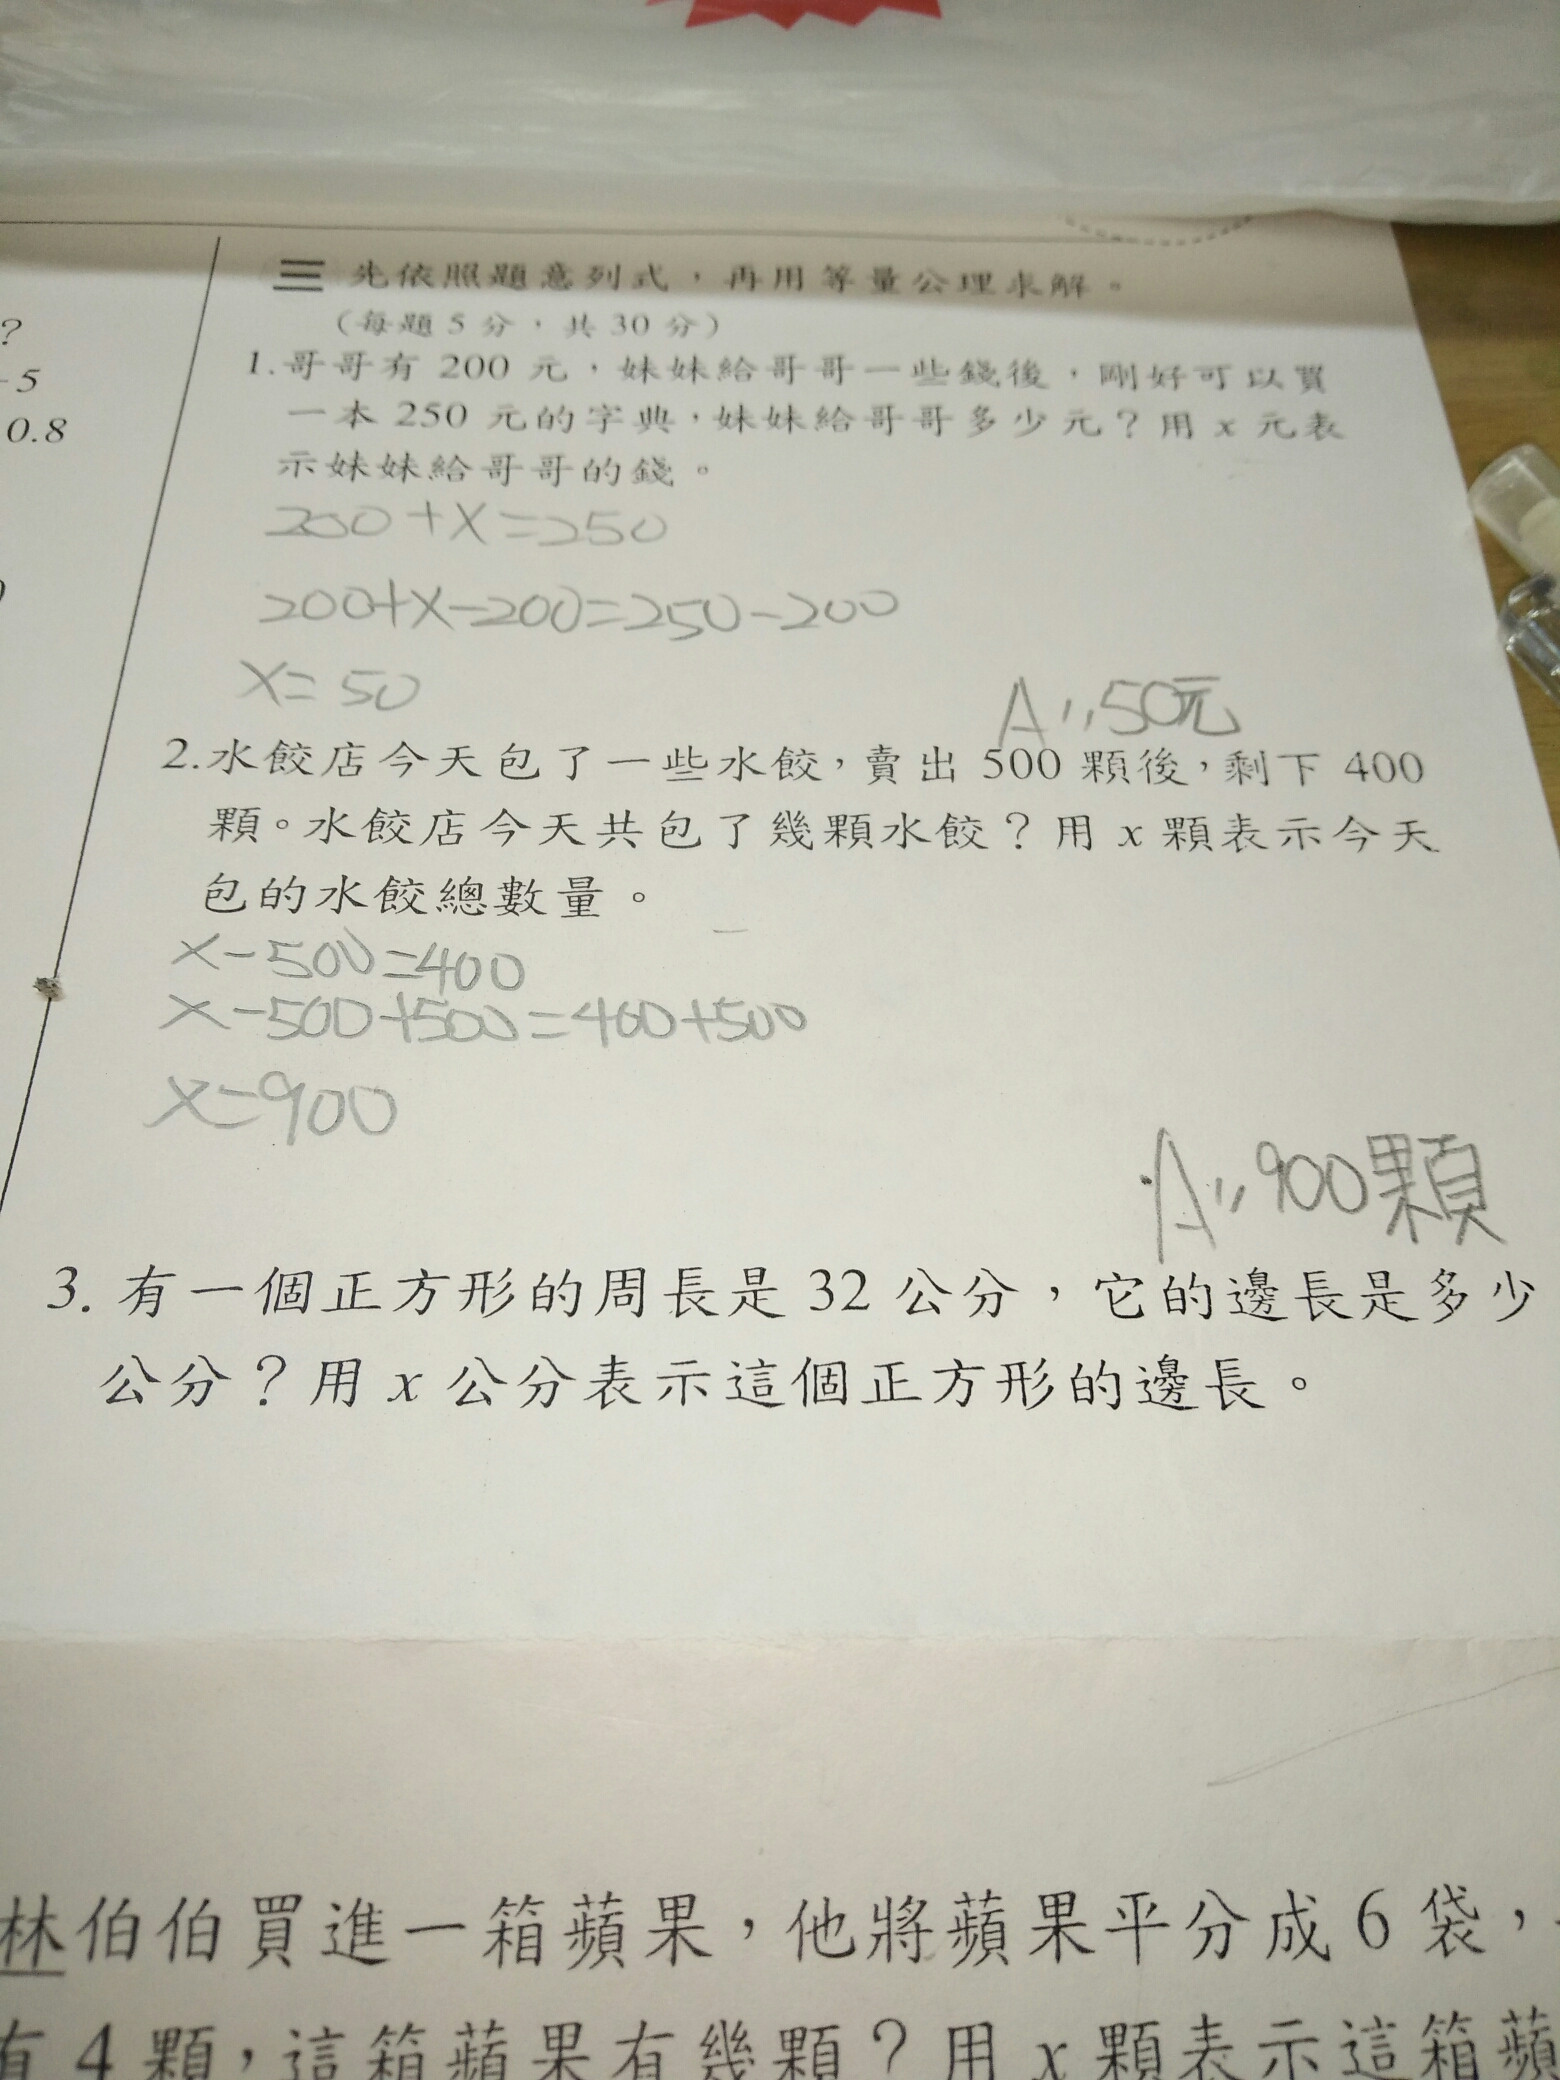 ?
-5
0.8
三 先依照題意列式，再用等量公理求解。
（每題 5 分，共 30 分）
1.哥哥有 200 元，妹妹給哥哥一些錢後，剛好可以買
一本 250 元的字典，妹妹給哥哥多少元？用 x 元表
示妹妹給哥哥的錢。
200+X=250
200+X-200=250-200
X=50
A:,,50元
2.水餃店今天包了一些水餃，賣出 500 顆後，剩下 400
顆。水餃店今天共包了幾顆水餃？用 x 顆表示今天
包的水餃總數量。
X-500=400
X-500+500=400+500
X=900
A:,,900顆
3. 有一個正方形的周長是 32 公分，它的邊長是多少
公分？用 x 公分表示這個正方形的邊長。
林伯伯買進一箱蘋果，他將蘋果平分成 6 袋，
有 4 顆，這箱蘋果有幾顆？用 x 顆表示這箱蘋